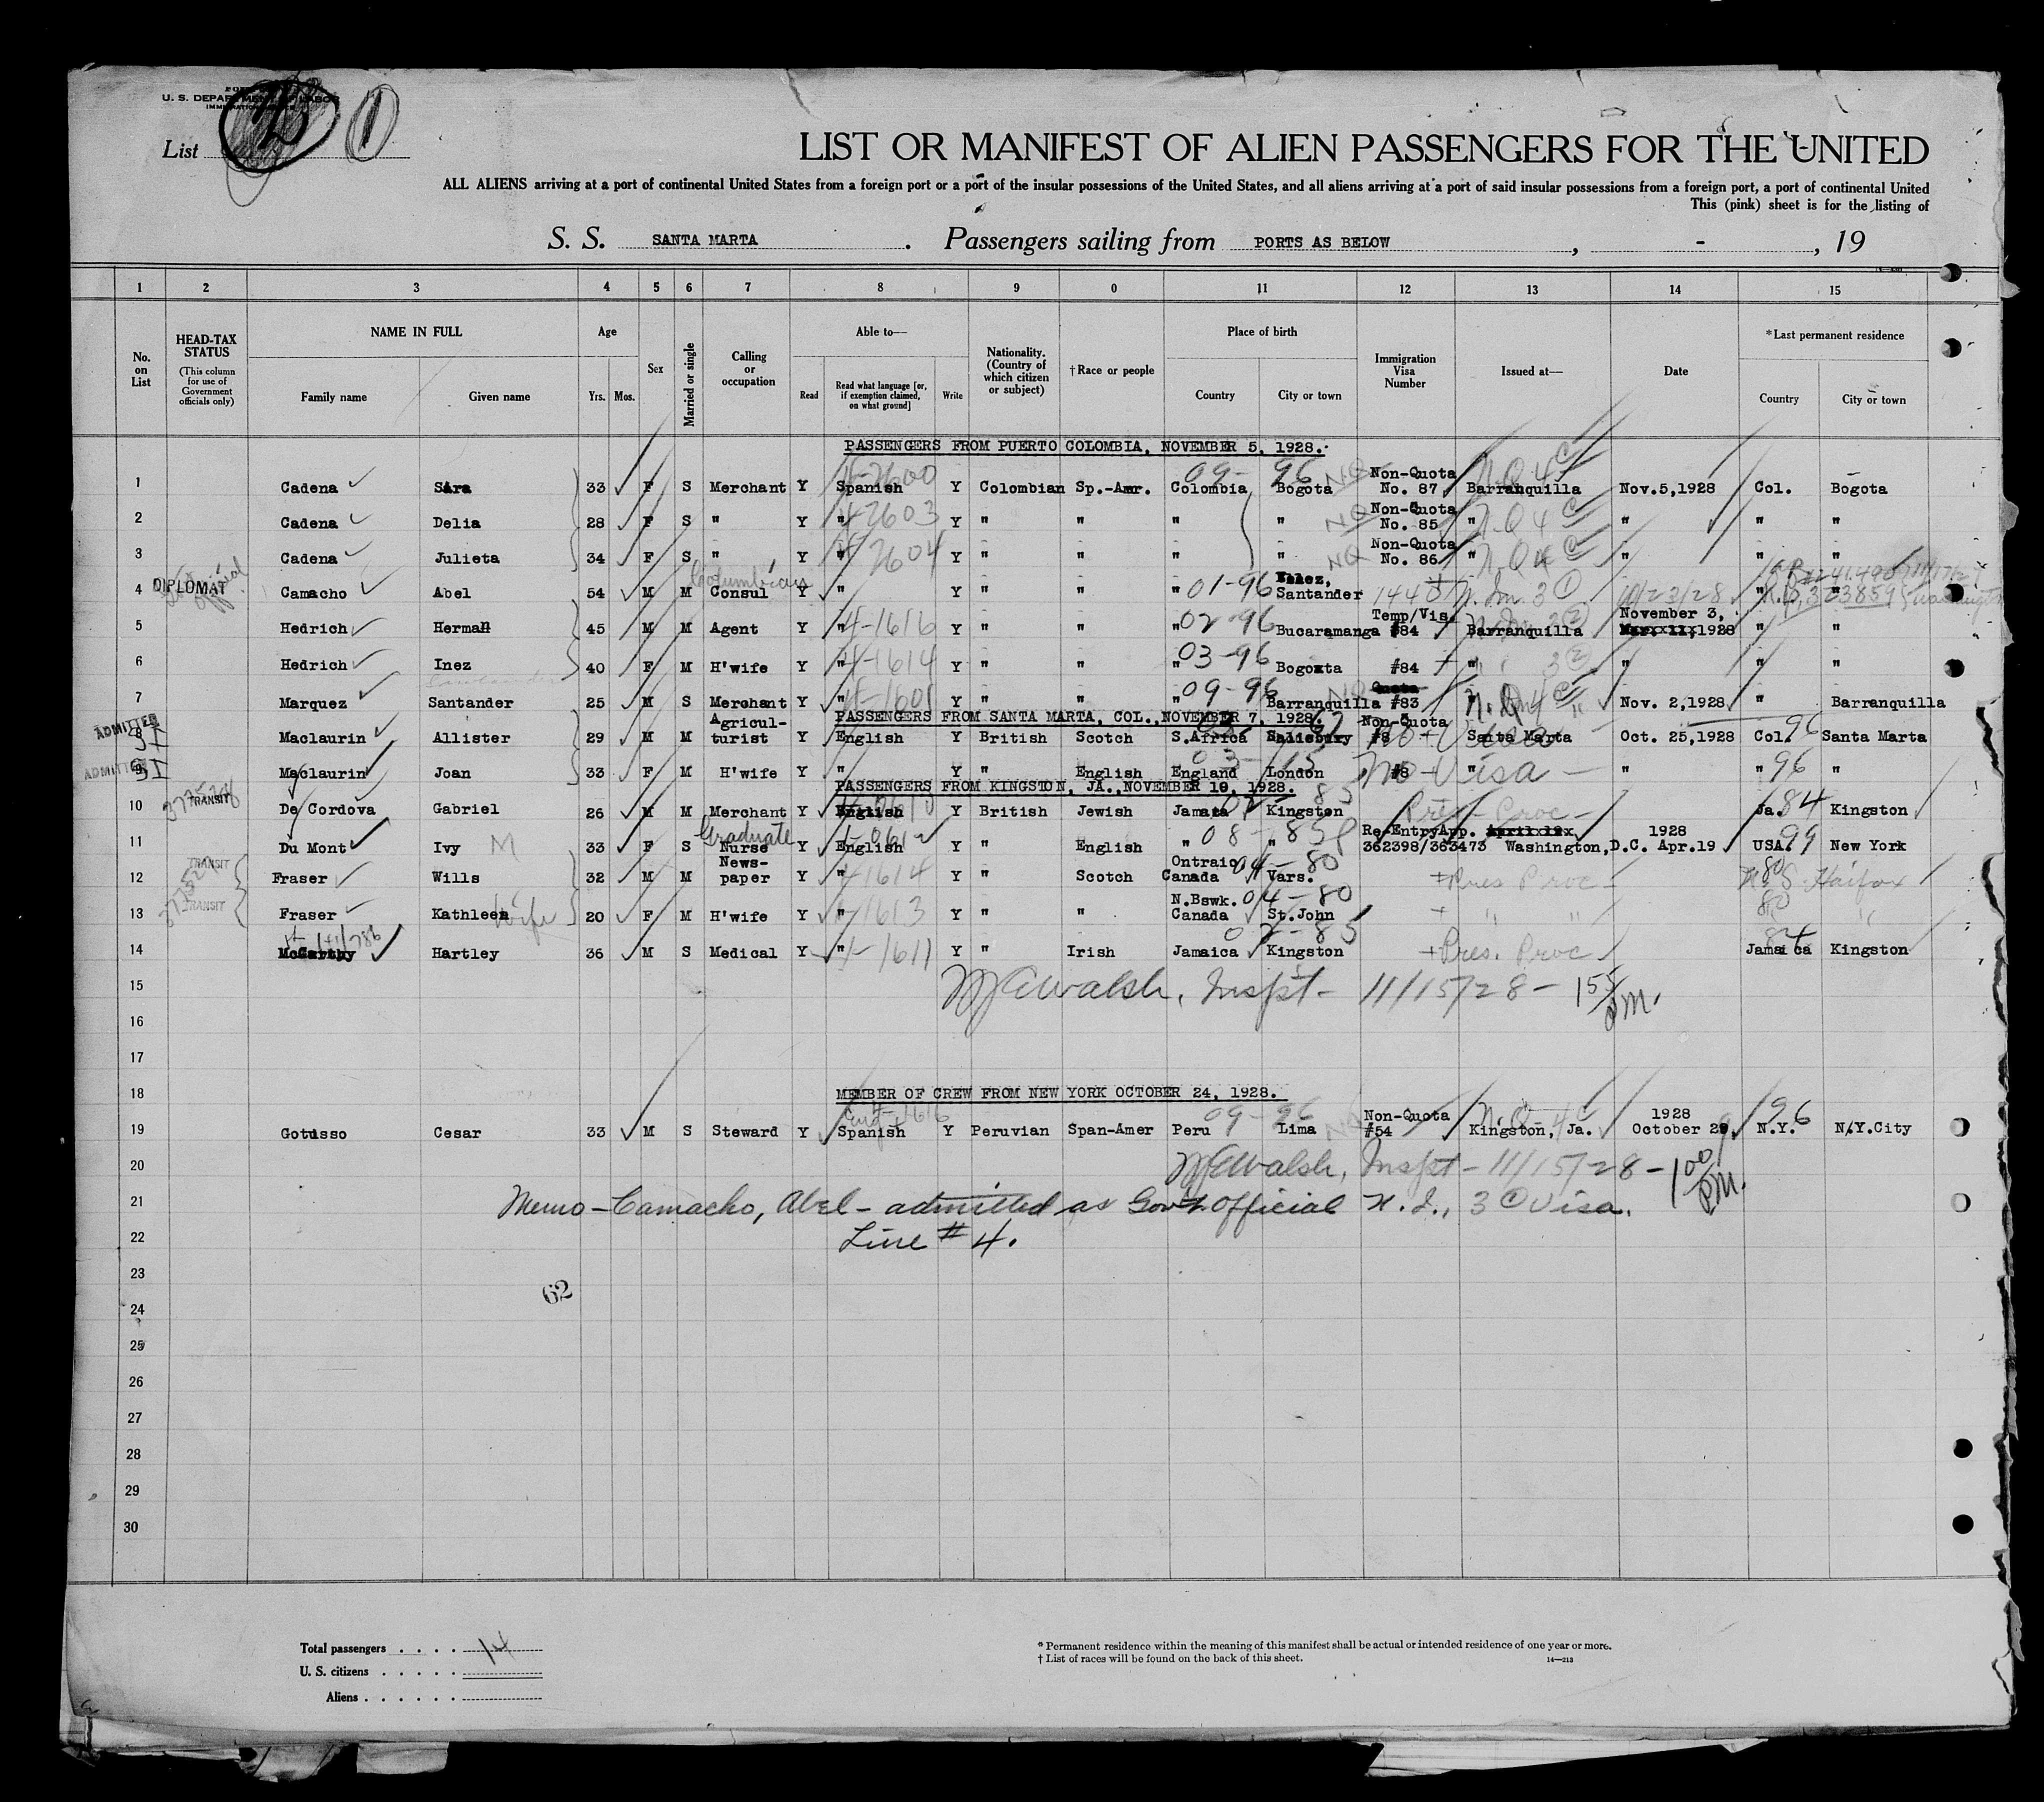 U. S. DEPARTMENT OF LABOR
List 1
LIST OR MANIFEST OF ALIEN PASSENGERS FOR THE UNITED
ALL ALIENS arriving at a port of continental United States from a foreign port or a port of the insular possessions of the United States, and all aliens arriving at a port of said insular possessions from a foreign port, a port of continental United
This (pink) sheet is for the listing of
S. S. SANTA MARTA . Passengers sailing from PORTS AS BELOW , - , 19
1 2 3 4 5 6 7 8 9 0 11 12 13 14 15
No. on List
HEAD-TAX STATUS (This column for use of Government officials only)
NAME IN FULL Family name Given name
Age Yrs. Mos.
Sex
Married or single
Calling or occupation
Able to— Read Read what language [or, if exemption claimed, on what ground] Write
Nationality. (Country of which citizen or subject)
†Race or people
Place of birth Country City or town
Immigration Visa Number
Issued at—
Date
*Last permanent residence Country City or town
PASSENGERS FROM PUERTO COLOMBIA, NOVEMBER 5, 1928.
1 Cadena Sara 33 F S Merchant Y Spanish 4-2600 Y Colombian Sp.-Amr. Colombia 09-96 Bogota NQ Non-Quota No. 87, Barranquilla N.Q 4 C Nov.5,1928 Col. Bogota
2 Cadena Delia 28 F S " Y " 4-2603 Y " " " " NQ Non-Quota No. 85 " N-Q 4 C " " "
3 Cadena Julieta 34 F S " Y " 2604 Y " " " " NQ Non-Quota No. 86 " N.Q 4 C " " "
4 DIPLOMAT official Camacho Abel 54 M M Columbian Consul Y " Y " " " 01-96 Santander 1440 3 1 10/23/28 323859 Washington
5 Hedrich Herman 45 M M Agent Y " 4-1616 Y " " " 02-96 Bucaramanga Temp/Vis. #84 Barranquilla November 3, 1928 " "
6 Hedrich Inez 40 F M H'wife Y " 4-1614 Y " " " 03-96 Bogoxta #84 " 3 2 " " "
7 Marquez Santander 25 M S Merchant Y " 4-1601 Y " " " 09-96 Barranquilla NQ #83 " N.Q 4 C Nov. 2,1928 " Barranquilla
PASSENGERS FROM SANTA MARTA, COL.,NOVEMBER 7, 1928.
8 ADMITTED SI Maclaurin Allister 29 M M Agricul-turist Y English Y British Scotch S.Africa Salisbury Non-Quota #8 No Visa Santa Marta Oct. 25,1928 Col. 96 Santa Marta
9 ADMITTED SI Maclaurin Joan 33 F M H'wife Y " Y " English England 03-15 London #8 No-Visa — " " " 96 "
PASSENGERS FROM KINGSTON, JA.,NOVEMBER 10, 1928.
10 TRANSIT De Cordova Gabriel 26 M M Merchant Y English Y British Jewish Jamaia 02-85 Kingston Pres Proc- Ja. 84 Kingston
11 Du Mont Ivy M 33 F S Graduate Nurse Y English Y " English " 08-85 " Re-EntryApp. 362398/363473 Washington,D.C. 1928 Apr.19 USA. 99 New York
12 TRANSIT Fraser Wills 32 M M News-paper Y " 4-1614 Y " Scotch Ontraio Canada 04-80 Vars. +Pres Proc- 80 N.S. Haifax
13 TRANSIT Fraser Kathleen Wife 20 F M H'wife Y " 4-1613 Y " " N.Bswk. Canada 04-80 St.John + " " 80 " "
14 McCarthy Hartley 36 M S Medical Y " 4-1611 Y " Irish Jamaica 02-85 Kingston +Pres. Proc Jamaica 84 Kingston
15 Walsh, Inspt- 11/15/28- 1 55 PM.
16
17
18 MEMBER OF CREW FROM NEW YORK OCTOBER 24, 1928.
19 Gotusso Cesar 33 M S Steward Y Spanish Eng 4-1616 Y Peruvian Span-Amer Peru 09-96 Lima Non-Quota #54 N.Q-4 C Kingston, Ja. 1928 October 29, 96 N.Y. N.Y.City
20 Walsh, Inspt-11/15/28-1 00 PM.
21 Memo-Camacho, Abel-admitted as Govt. Official N.I., 3 1 Visa.
22 Line #4.
23
62
24
25
26
27
28
29
30
Total passengers . . . . 14
U. S. citizens . . . . .
Aliens . . . . . .
* Permanent residence within the meaning of this manifest shall be actual or intended residence of one year or more.
† List of races will be found on the back of this sheet. 14—213